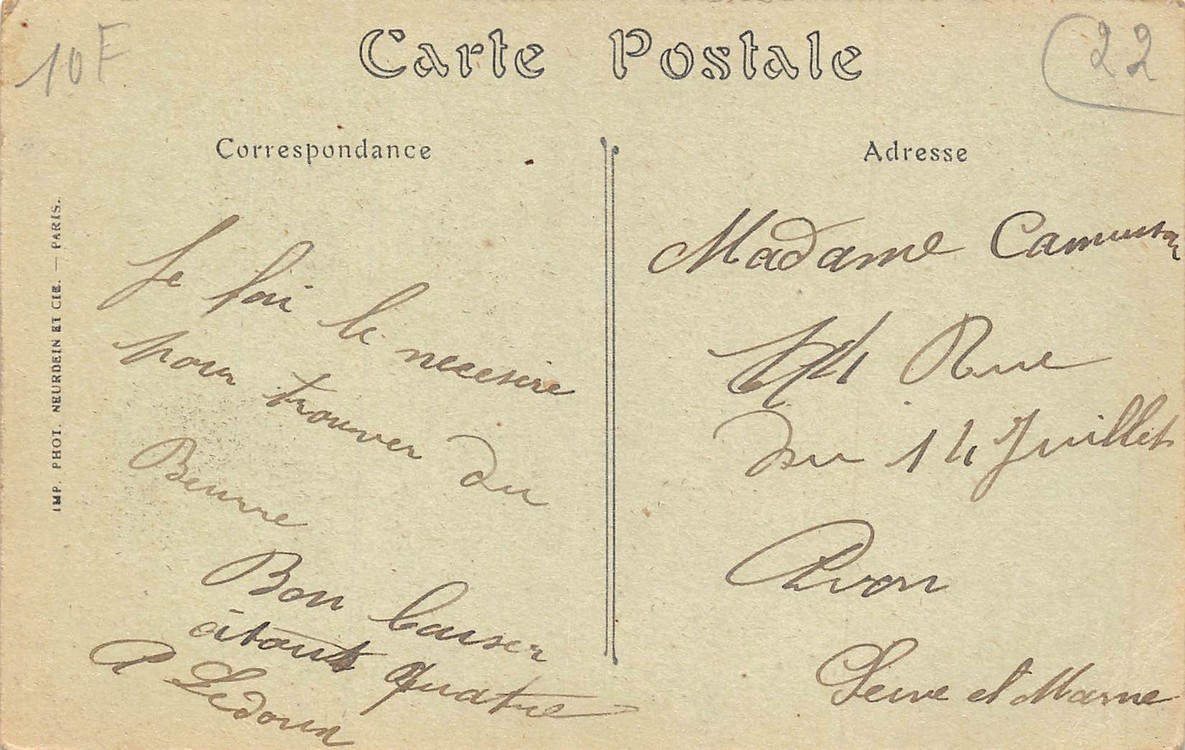 10F
Carte Postale
22
Correspondance
Adresse
IMP. PHOT. NEURDEIN ET CIE. — PARIS.
Je fai le necesire
pour trouver du
Beurre
Bon baiser
a tout quatre
A Ledoux
Madame
Rue
du 14 Juillet
Avon
Seine et Marne